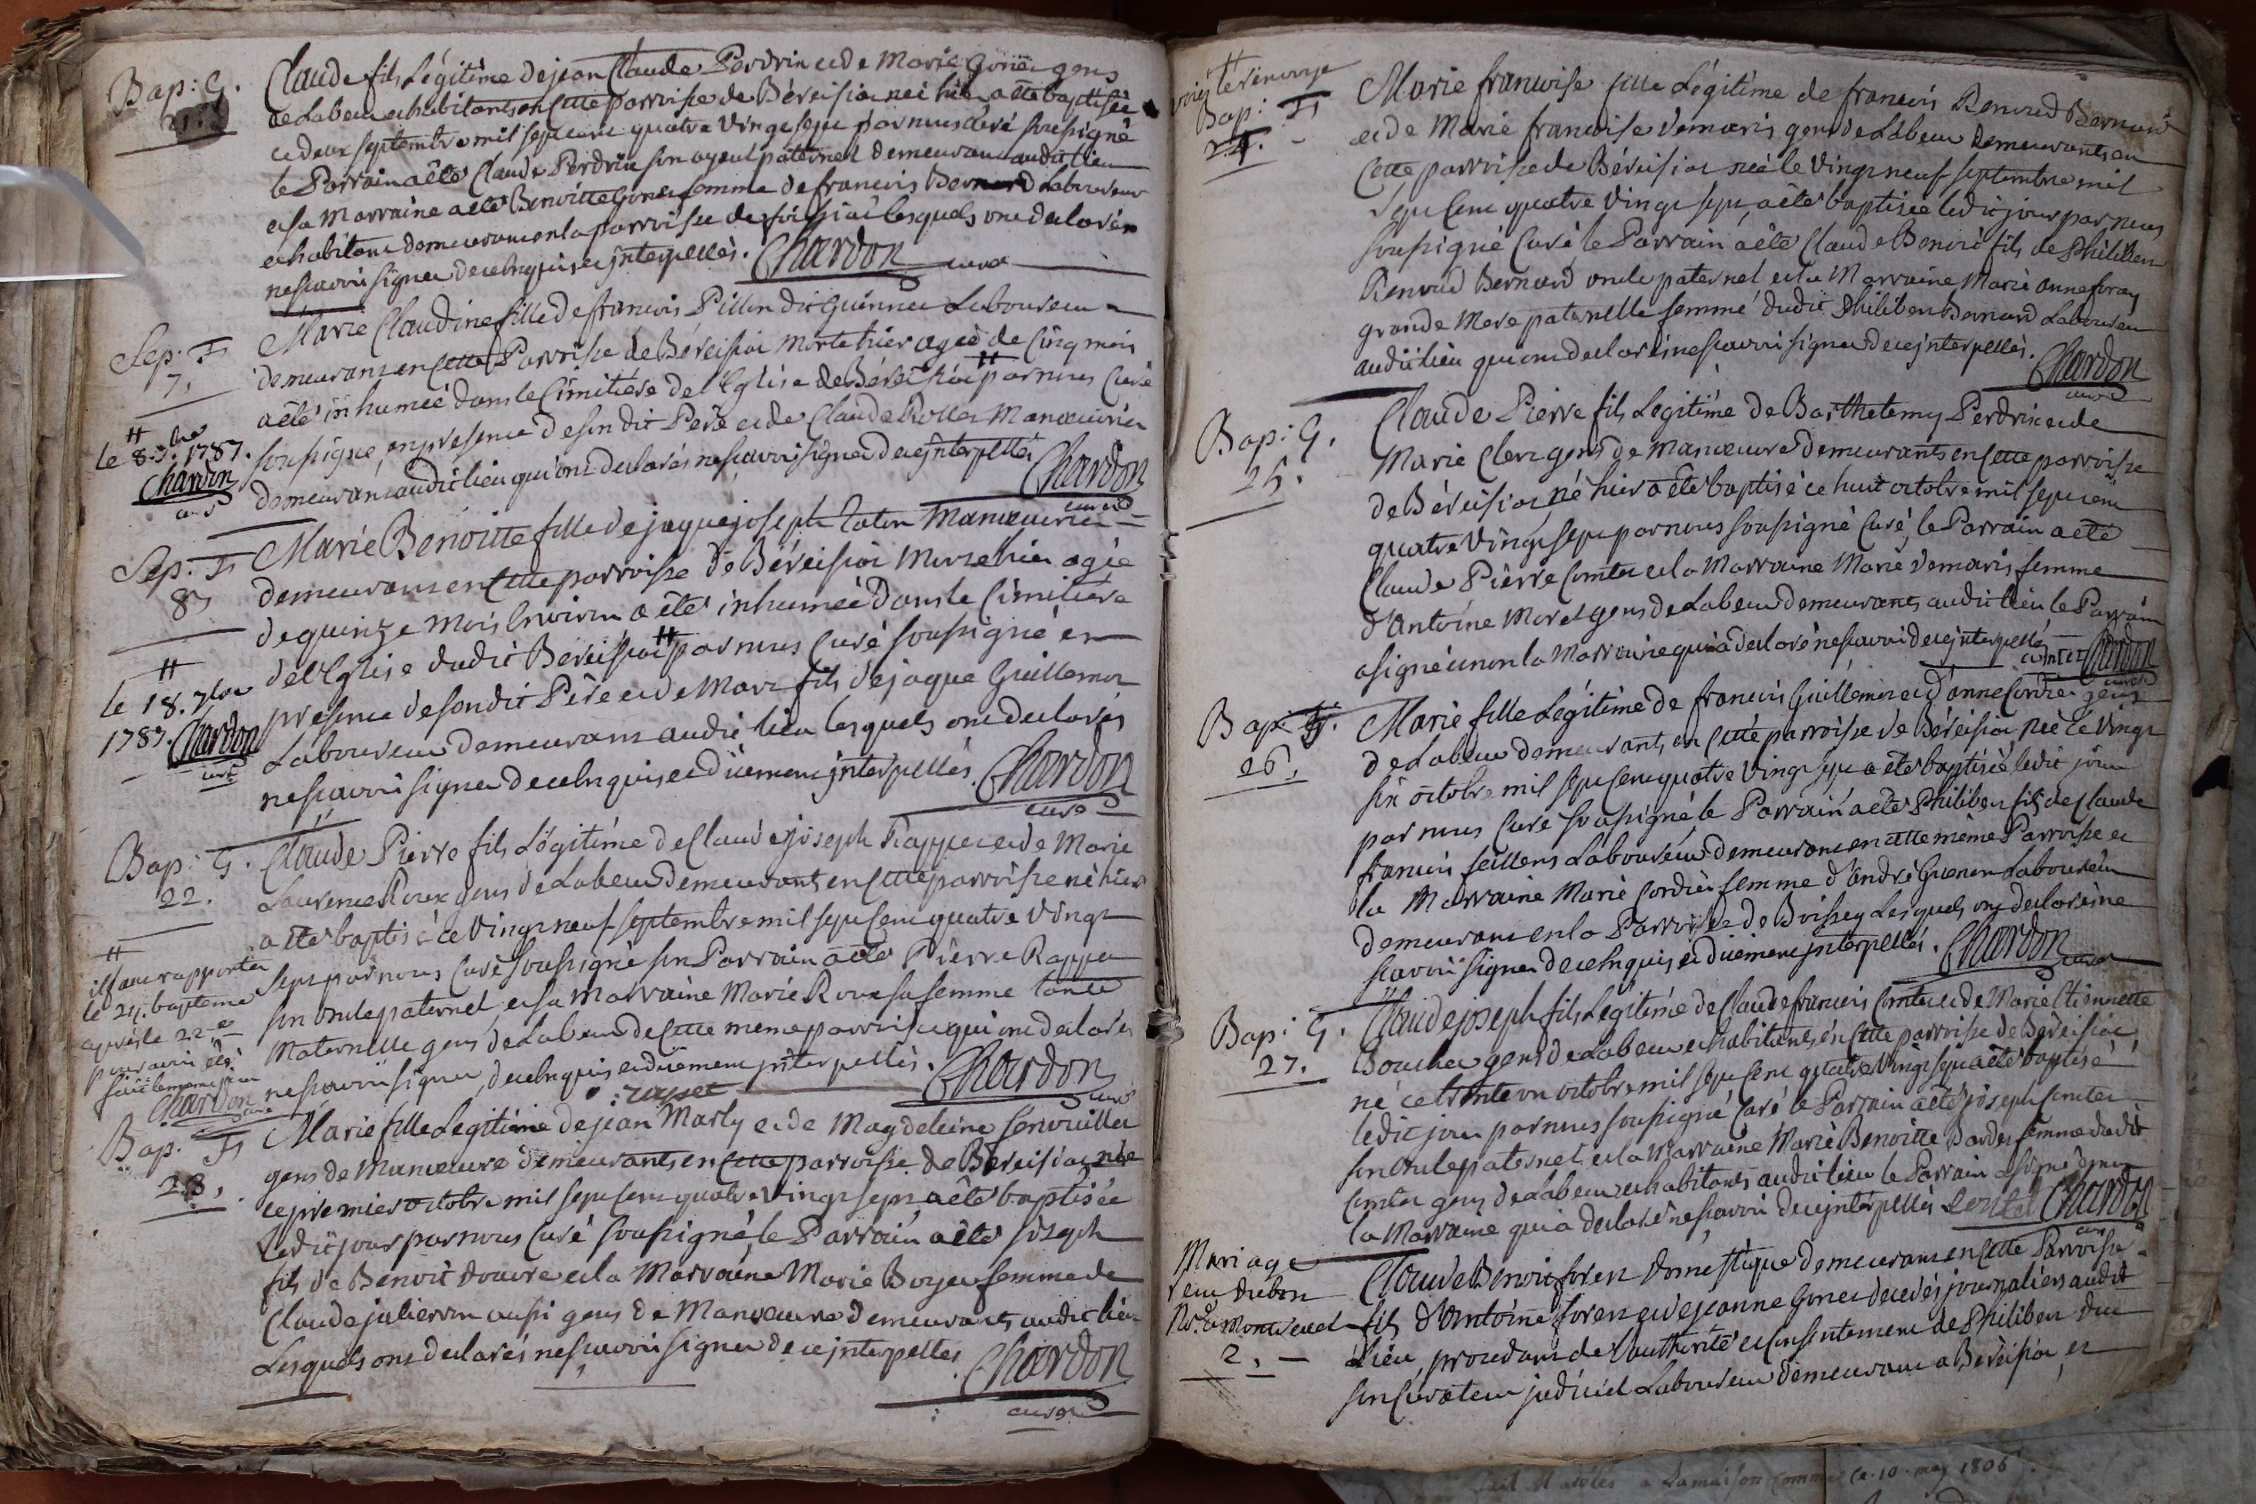 Bap: G.
21.
Claude fils Légitime de jean Claude Perdrix et de Marie Gorier gens
de Labeur et habitants en cette parroisse de Béréisiat né hier a été baptisé
ce deux septembre mil sept cent quatre vingt sept par nous Curé soussigné
le Parrain a été Claude Perdrix son ayeul paternel demeurant audit lieu
et sa Marraine a été Benoitte femme de francois Bernard Laboureur
et habitant demeurant en la parroisse de foissiat lesquels ont declarés
ne sçavoir signer de ce enquis et interpellés. Chardon curé
Sep: F
7.
Marie Claudine fille de francois Pillon dit Guinner Laboureur
demeurant en cette Parroisse de Béréisiat morte hier agée de Cinq mois
a été inhumée dans le Cimitiére de l'Eglise de Béréisiat # par nous Curé
soussigné, en presence de son dit Pere et de Claude Roller Manœuvrier
demeurant audit lieu qui ont declarés ne sçavoir signer de ce interpellés
Chardon
curé
#
le 8. 7.bre 1787.
Chardon
curé
Sep: F
8
Marie Benoitte fille de jaque joseph Manœuvrier
demeurant en cette parroisse de Béréisiat Morte hier agée
de quinze Mois Environ a été inhumée dans le Cimitiére
de l'Eglise dudit Béréisiat # par nous Curé soussigné en
presence de son dit Pére et de Marc fils de jaque Guillemot
Laboureur demeurant audit lieu lesquels ont declarés
ne sçavoir signer de ce enquis et düement interpellés. Chardon
curé
#
le 18. 7bre
1787. Chardon
curé
Bap: G.
22.
Claude Pierre fils Légitime de Claude joseph Rappet et de Marie
Laurence Roux gens de Labeur demeurant en cette parroisse né hier
a été baptisé ce vingt neuf septembre mil sept cent quatre vingt
sept par nous Curé soussigné son Parrain a été Pierre Rappet
son oncle paternel, et sa Marraine Marie Roux sa femme tante
Maternelle gens de Labeur de cette meme parroisse qui ont declarés
ne sçavoir signer, de ce enquis et düement interpellés. Chardon
curé
#
il faut rapporter
le 24. bapteme
aprés le 22.e
Chardon
curé
Bap: F
23.
Marie fille Legitime de jean Marly et de Magdeleine
gens de Manœuvre demeurants en cette parroisse de Béréisiat née
ce premier octobre mil sept cent quatre vingt sept, a été baptisée
ledit jour par nous Curé soussigné le Parrain a été joseph
fils de Benoit et la Marraine Marie Boyer femme de
Claude julieron aussi gens de Manœuvre demeurants audit lieu
Lesquels ont declarés ne sçavoir signer de ce interpellés. Chardon
curé
#
voiez le renvoye
Bap: F
24.
Marie francoise fille Légitime de francois Renoud Bernard
et de Marie francoise demaris gens de Labeur demeurants en
Cette parroisse de Béréisiat née le vingt neuf septembre mil
sept Cent quatre vingt sept, a été baptisée ledit jour par nous
soussigné Curé le Parrain a été Claude Benoit fils de Philibert
Renoud Bernard oncle paternel et la Marraine Marie anne foray
grande Mere paternelle femme dudit Philibert Bernard Laboureur
audit lieu qui ont declarés ne sçavoir signer de ce interpellés.
Chardon
curé
Bap: G.
25.
Claude Pierre fils Legitime de Barthelemy Perdrix et de
Marie Clerc gens de Manœuvre demeurants en cette parroisse
de Béréisiat né hier a été baptisé ce huit octobre mil sept cent
quatre vingt sept par nous soussigné Curé, le Parrain a été
Claude Pierre Comtet et la Marraine Marie demaris femme
d'Antoine Morel gens de Labeur demeurants audit lieu le Parrain
a signé et non la Marraine qui a declaré ne sçavoir de ce interpellé
comtet Chardon
curé
Bap: F.
26.
Marie fille Légitime de francois Guillemot et d'anne Cordier gens
de Labeur demeurants en cette parroisse de Béréisiat née le vingt
six octobre mil sept Cent quatre vingt sept a été baptisée ledit jour
par nous Curé soussigné le Parrain a été Philibert fils de Claude
francois feillens Laboureur demeurant en cette même Parroisse et
la Marraine Marie Cordier femme d'andré Guenon Laboureur
demeurant en la Parroisse de Boissey Lesquels ont declarés ne
sçavoir signer de ce enquis et düement interpellés. Chardon
curé
Bap: G.
27.
Claude joseph fils Légitime de Claude francois Comtet et de Marie Etiennette
Boucher gens de Labeur et habitants en cette parroisse de Béréisiat
né ce trente un octobre mil sept Cent quatre vingt sept a été baptisé
ledit jour par nous soussigné Curé le Parrain a été joseph Comtet
son oncle paternel, et la Marraine Marie Benoitte femme dudit
Comtet gens de Labeur et habitants audit lieu le Parrain a signé
la Marraine qui a declaré ne sçavoir de ce interpellés Comtet Chardon
curé
Mariage
2.
Claude Benoit foren domestique demeurant en cette Parroisse
fils d'Antoine foren et de jeanne decedés journaliers audit
Lieu, procedant de l'authorité et Consentement de Philibert duc
son Curateur judiciel Laboureur demeurant a Béréisiat, et
a Lamaison comme ce 10. may 1806